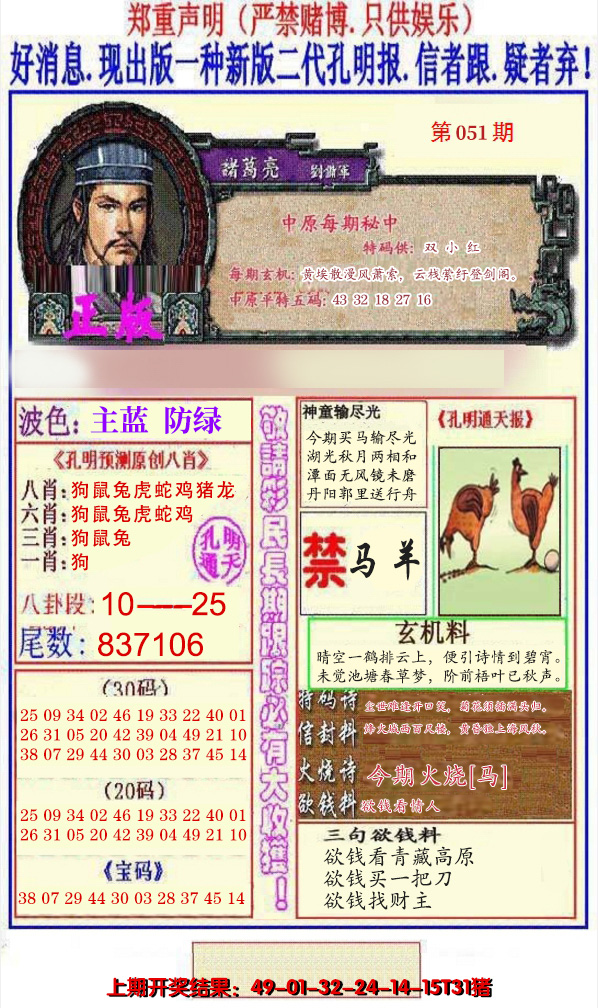 郑重声明（严禁赌博.只供娱乐）
好消息.现出版一种新版二代孔明报.信者跟.疑者弃!
第 051 期
諸葛亮 劉備軍
中原每期秘中
特码供: 双 小 红
每期玄机: 黄埃散漫风萧索，云栈萦纡登剑阁。
中原平特五码: 43 32 18 27 16
正版
波色: 主蓝 防绿
《孔明预测原创八肖》
八肖: 狗鼠兔虎蛇鸡猪龙
六肖: 狗鼠兔虎蛇鸡
三肖: 狗鼠兔
一肖: 狗
孔明
通天
八卦段: 10——25
尾数: 837106
（30码）
25 09 34 02 46 19 33 22 40 01
26 31 05 20 42 39 04 49 21 10
38 07 29 44 30 03 28 37 45 14
（20码）
25 09 34 02 46 19 33 22 40 01
26 31 05 20 42 39 04 49 21 10
《宝码》
38 07 29 44 30 03 28 37 45 14
敬請彩民長期跟踪必有大收獲！
神童输尽光
今期买马输尽光
湖光秋月两相和
潭面无风镜未磨
丹阳郭里送行舟
《孔明通天报》
禁 马 羊
玄机料
晴空一鹤排云上，便引诗情到碧霄。
未觉池塘春草梦，阶前梧叶已秋声。
特码诗 尘世难逢开口笑，菊花须插满头归。
信封料 烽火城西百尺楼，黄昏独上海风秋。
火烧诗 今期火烧[马]
欲钱料 欲钱看情人
三句欲钱料
欲钱看青藏高原
欲钱买一把刀
欲钱找财主
上期开奖结果：49-01-32-24-14-15T31猪